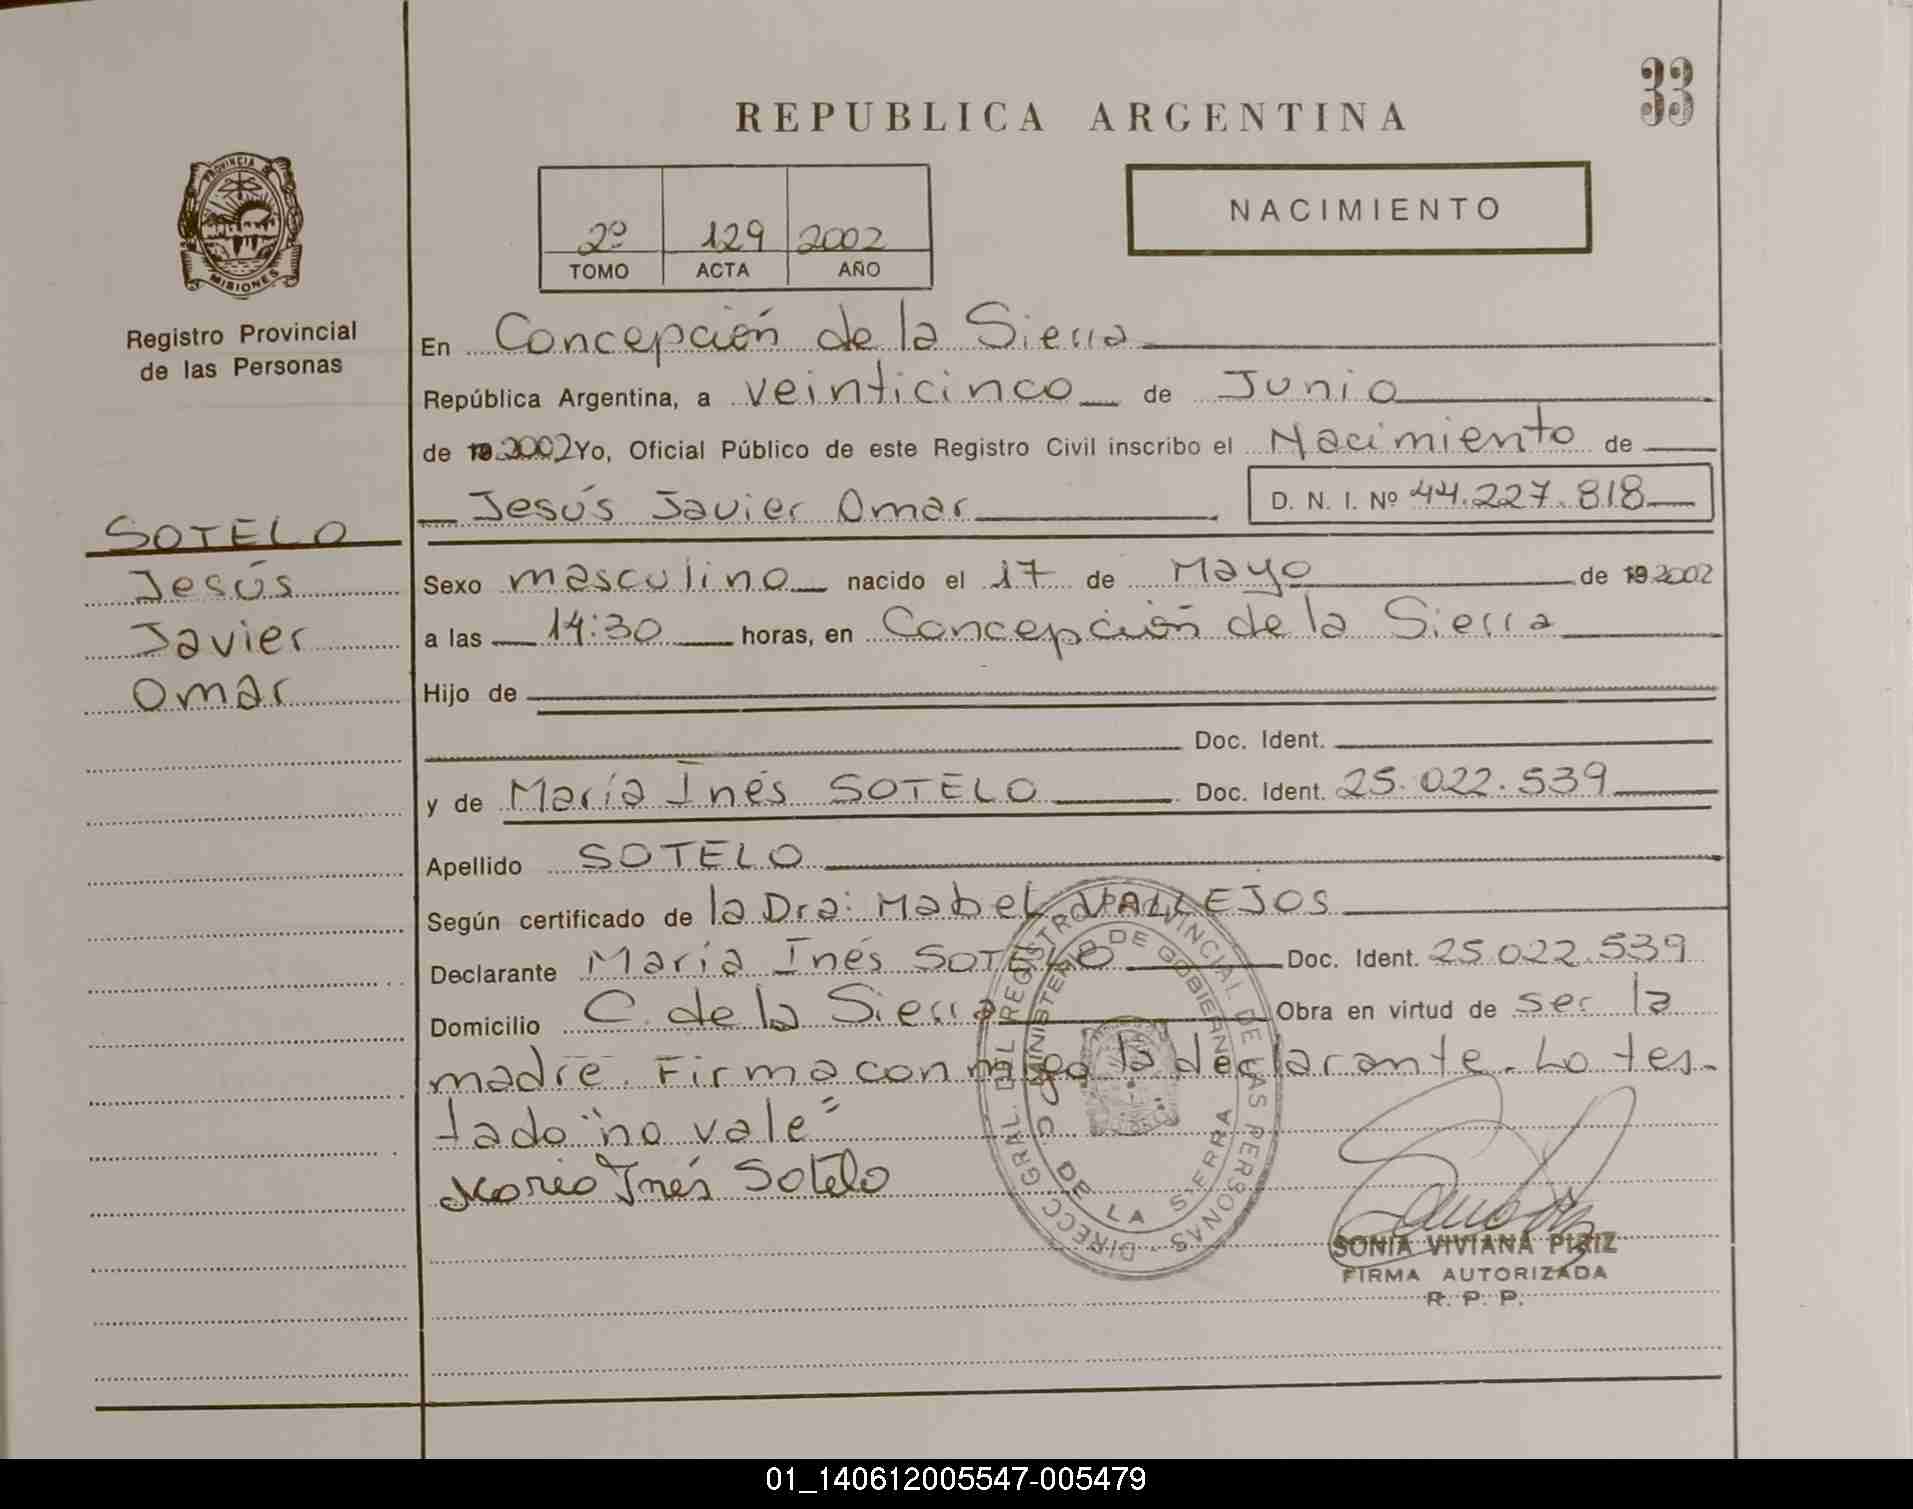 33
REPUBLICA ARGENTINA
PROVINCIA
MISIONES
Registro Provincial
de las Personas
2º 129 2002
TOMO ACTA AÑO
NACIMIENTO
En Concepción de la Sierra
República Argentina, a veinticinco de Junio
de 19 2002 Yo, Oficial Público de este Registro Civil inscribo el Nacimiento de
Jesús Javier Omar D. N. I. Nº 44.227.818
SOTELO
Jesús
Javier
Omar
Sexo masculino nacido el 17 de Mayo de 19 2002
a las 14:30 horas, en Concepción de la Sierra
Hijo de
Doc. Ident.
y de María Inés SOTELO Doc. Ident. 25.022.539
Apellido SOTELO
Según certificado de la Dra: Mabel VALLEJOS
Declarante María Inés SOTELO Doc. Ident. 25.022.539
Domicilio C. de la Sierra Obra en virtud de ser la
madre. Firma conmigo la declarante. Lo tes-
tado "no vale"
María Inés Sotelo
DIRECC. GRAL. DEL REGISTRO PROVINCIAL DE LAS PERSONAS
MINISTERIO DE GOBIERNO
C. DE LA SIERRA
SONIA VIVIANA PIRIZ
FIRMA AUTORIZADA
R. P. P.
01_140612005547-005479